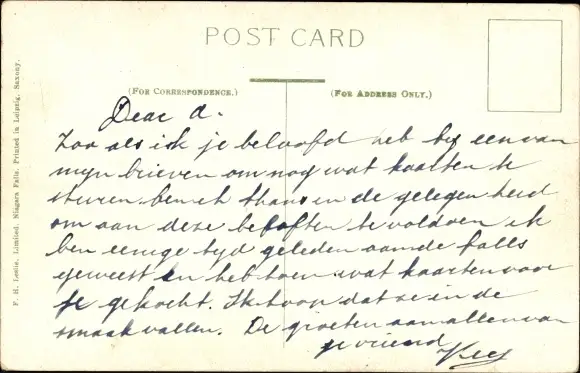 POST CARD
(FOR CORRESPONDENCE.)
(FOR ADDRESS ONLY.)
F. H. Leslie, Limited, Niagara Falls. Printed in Leipzig, Saxony.
Dear A.
Zoo als ik je beloofd heb bij een van
mijn brieven om nog wat kaarten te
sturen ben ik thans in de gelegenheid
om aan deze beloften te voldoen ik
ben eenige tyd geleden aan de falls
geweest en heb toen wat kaarten voor
je gekocht. Ik hoop dat ze in de
smaak vallen. De groeten aan allen van
je vriend